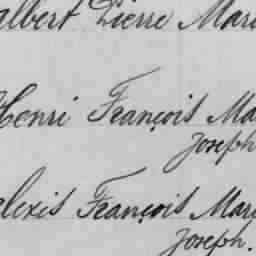 albert Pierre Mari
Henri François Ma
Joseph
alexis François Mari
Joseph.